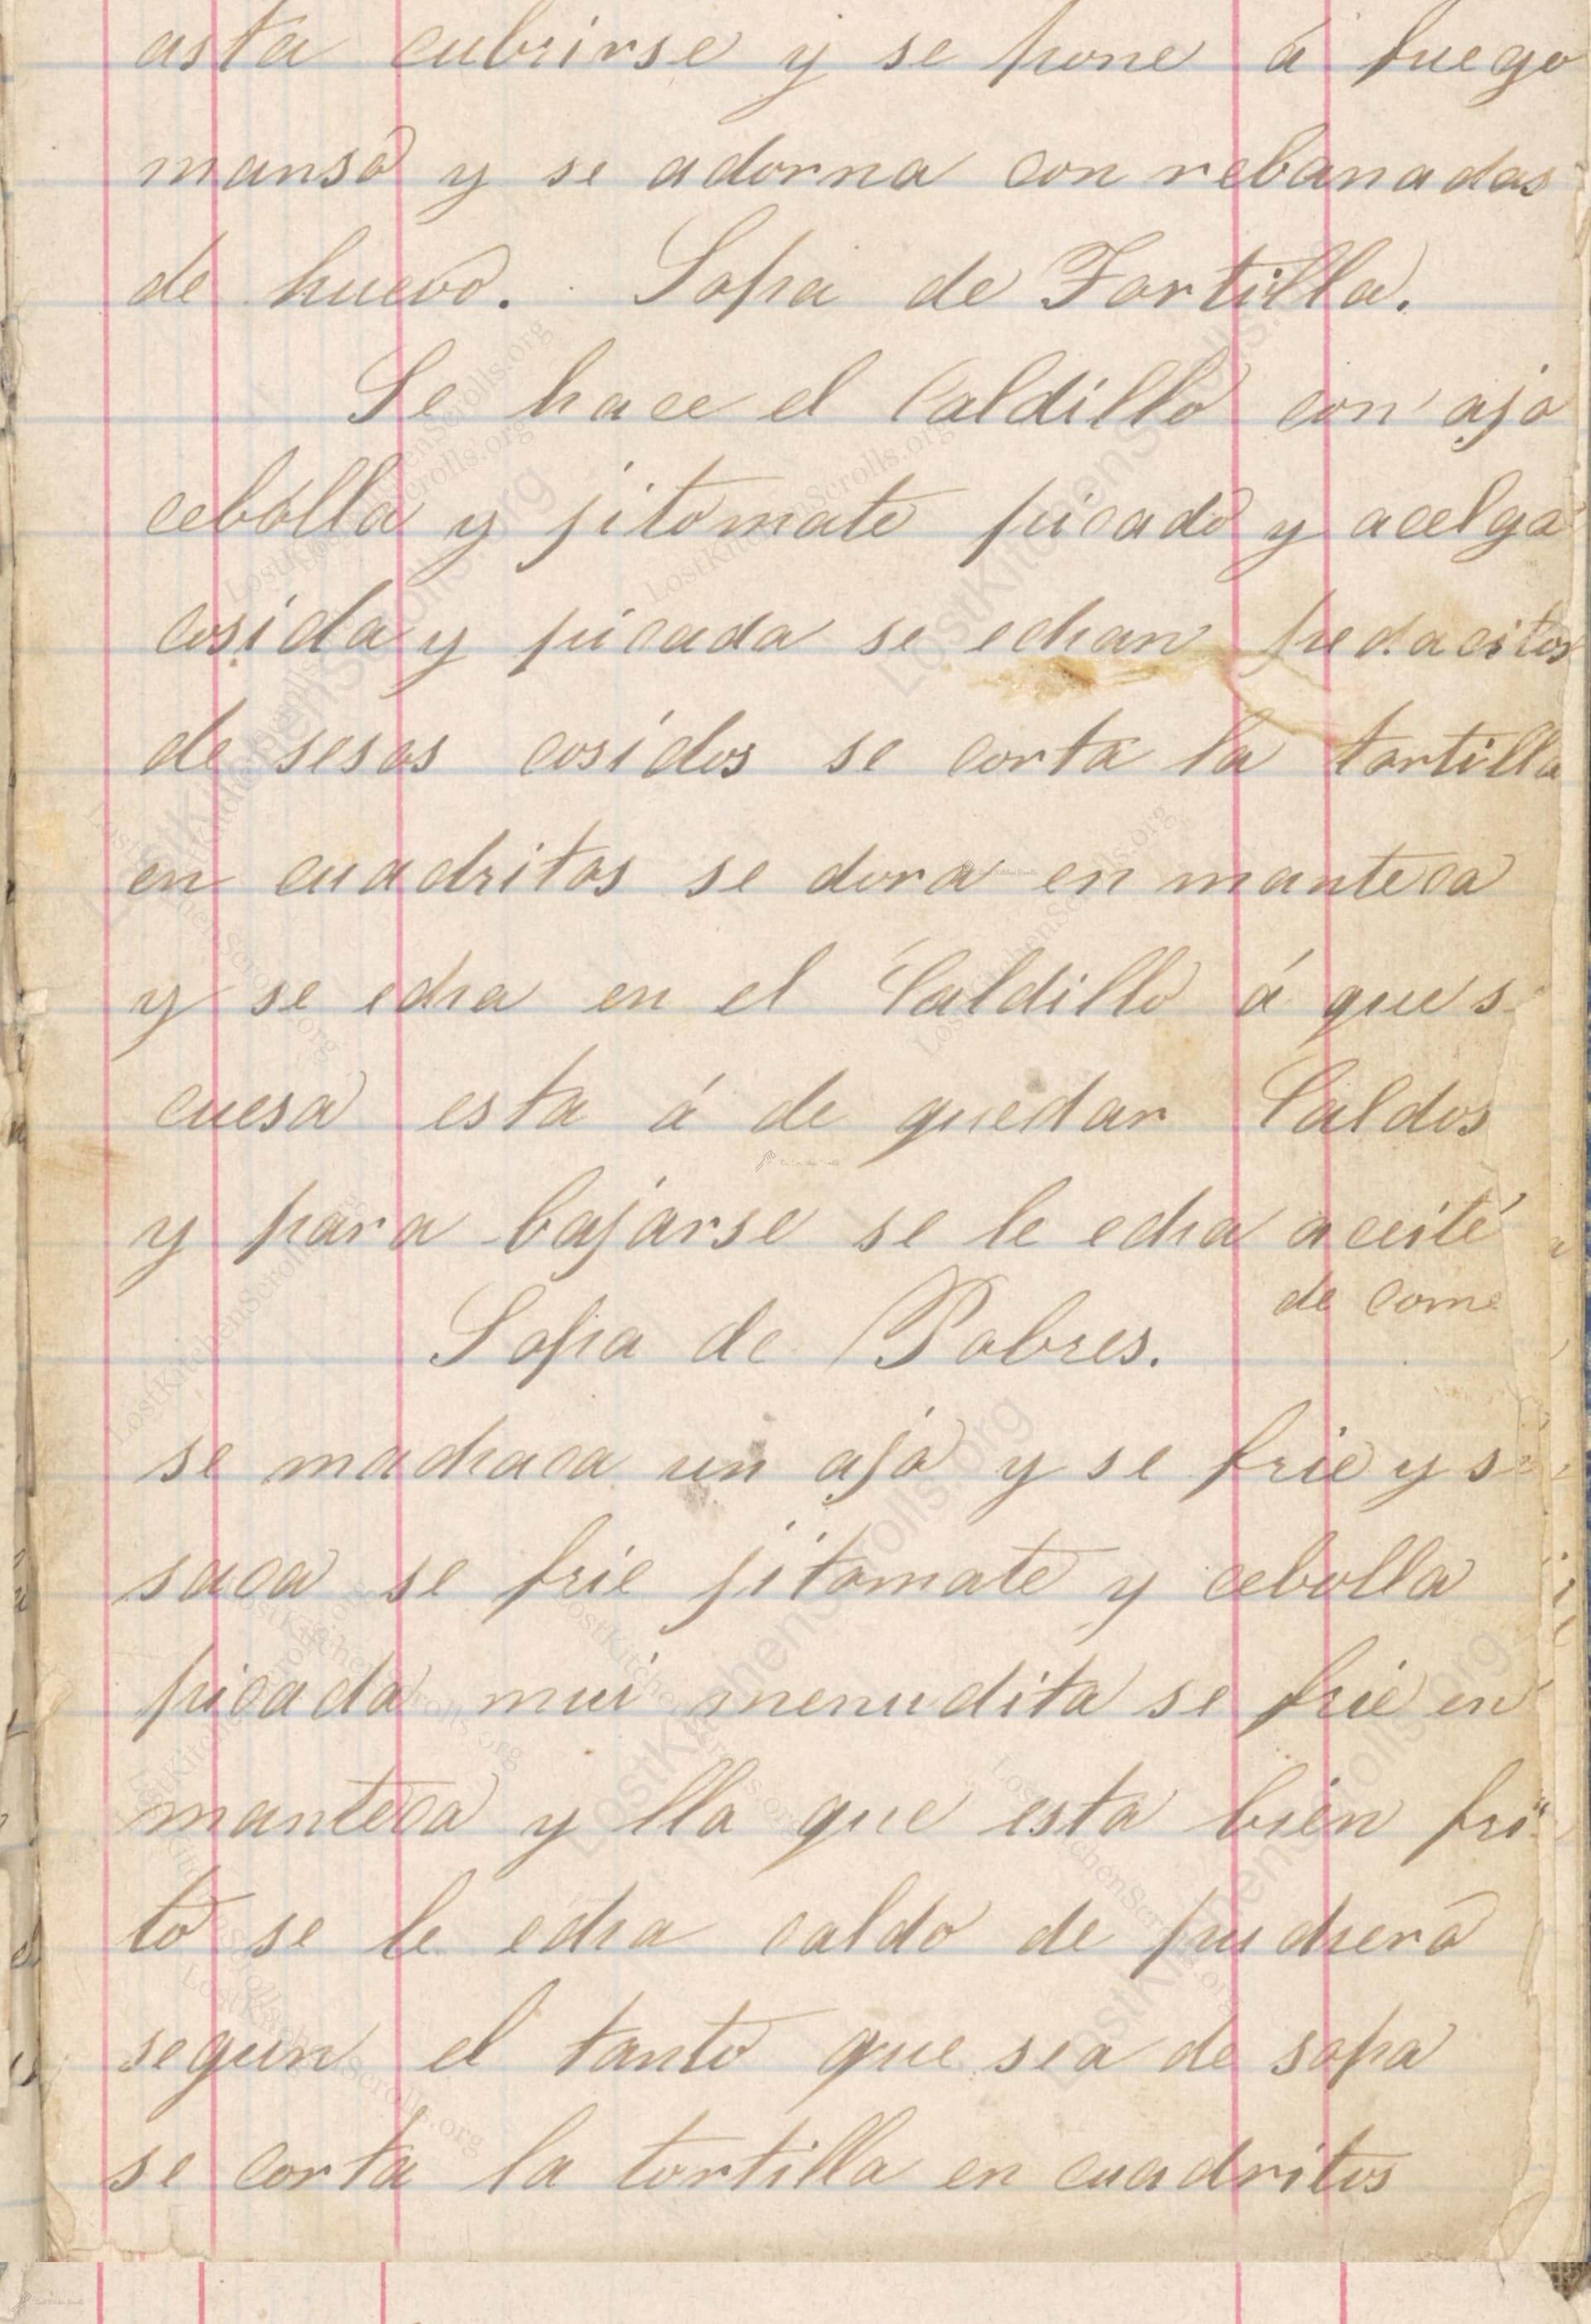 asta cubrirse y se pone á fuego
manso y se adorna con rebanadas
de huevo. Sopa de Tortilla.
Se hace el Caldillo con ajo
cebolla y jitomate picado y acelga
cosida y picada se echan pedacitos
de sesos cosidos se corta la tortilla
en cuadritos se dora en manteca
y se echa en el Caldillo á que s
cuesa esta á de quedar Caldos
y para bajarse se le echa aceite
de come
Sopa de Pobres.
se machaca un ajo y se frie y s
saca se frie jitomate y cebolla
picada mui menudita se frie en
manteca y lla que esta bien fri
to se le echa caldo de puchero
segun el tanto que sea de sopa
se corta la tortilla en cuadritos